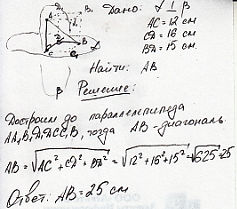 Дано: α ⊥ β
AC = 12 см
CD = 16 см
BD = 15 см.
Найти: AB
Решение:
Достроим до параллелепипеда
тогда AB - диагональ.
AB = √AC² + CD² + BD² = √12² + 16² + 15² = √625 = 25
Ответ: AB = 25 см